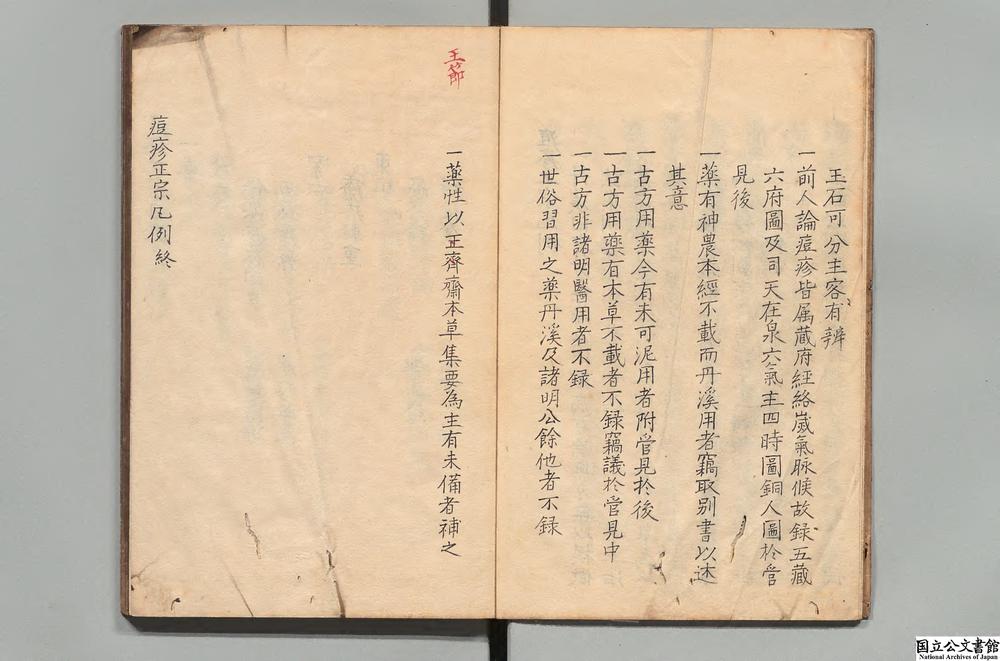 玉石可分主客有辨
一前人論痘疹皆属藏府經絡歲氣脉候故録五藏
六府圖及司天在泉六氣主四時圖銅人圖於管
見後
一藥有神農本經不載而丹溪用者竊取别書以述
其意
一古方用藥今有未可泥用者附管見於後
一古方用藥有本草不載者不録竊議於管見中
一古方非諸明醫用者不録
一世俗習用之藥丹溪及諸明公餘他者不録
王節
一藥性以王齊齋本草集要為主有未備者補之
痘疹正宗凡例終
国立公文書館
National Archives of Japan